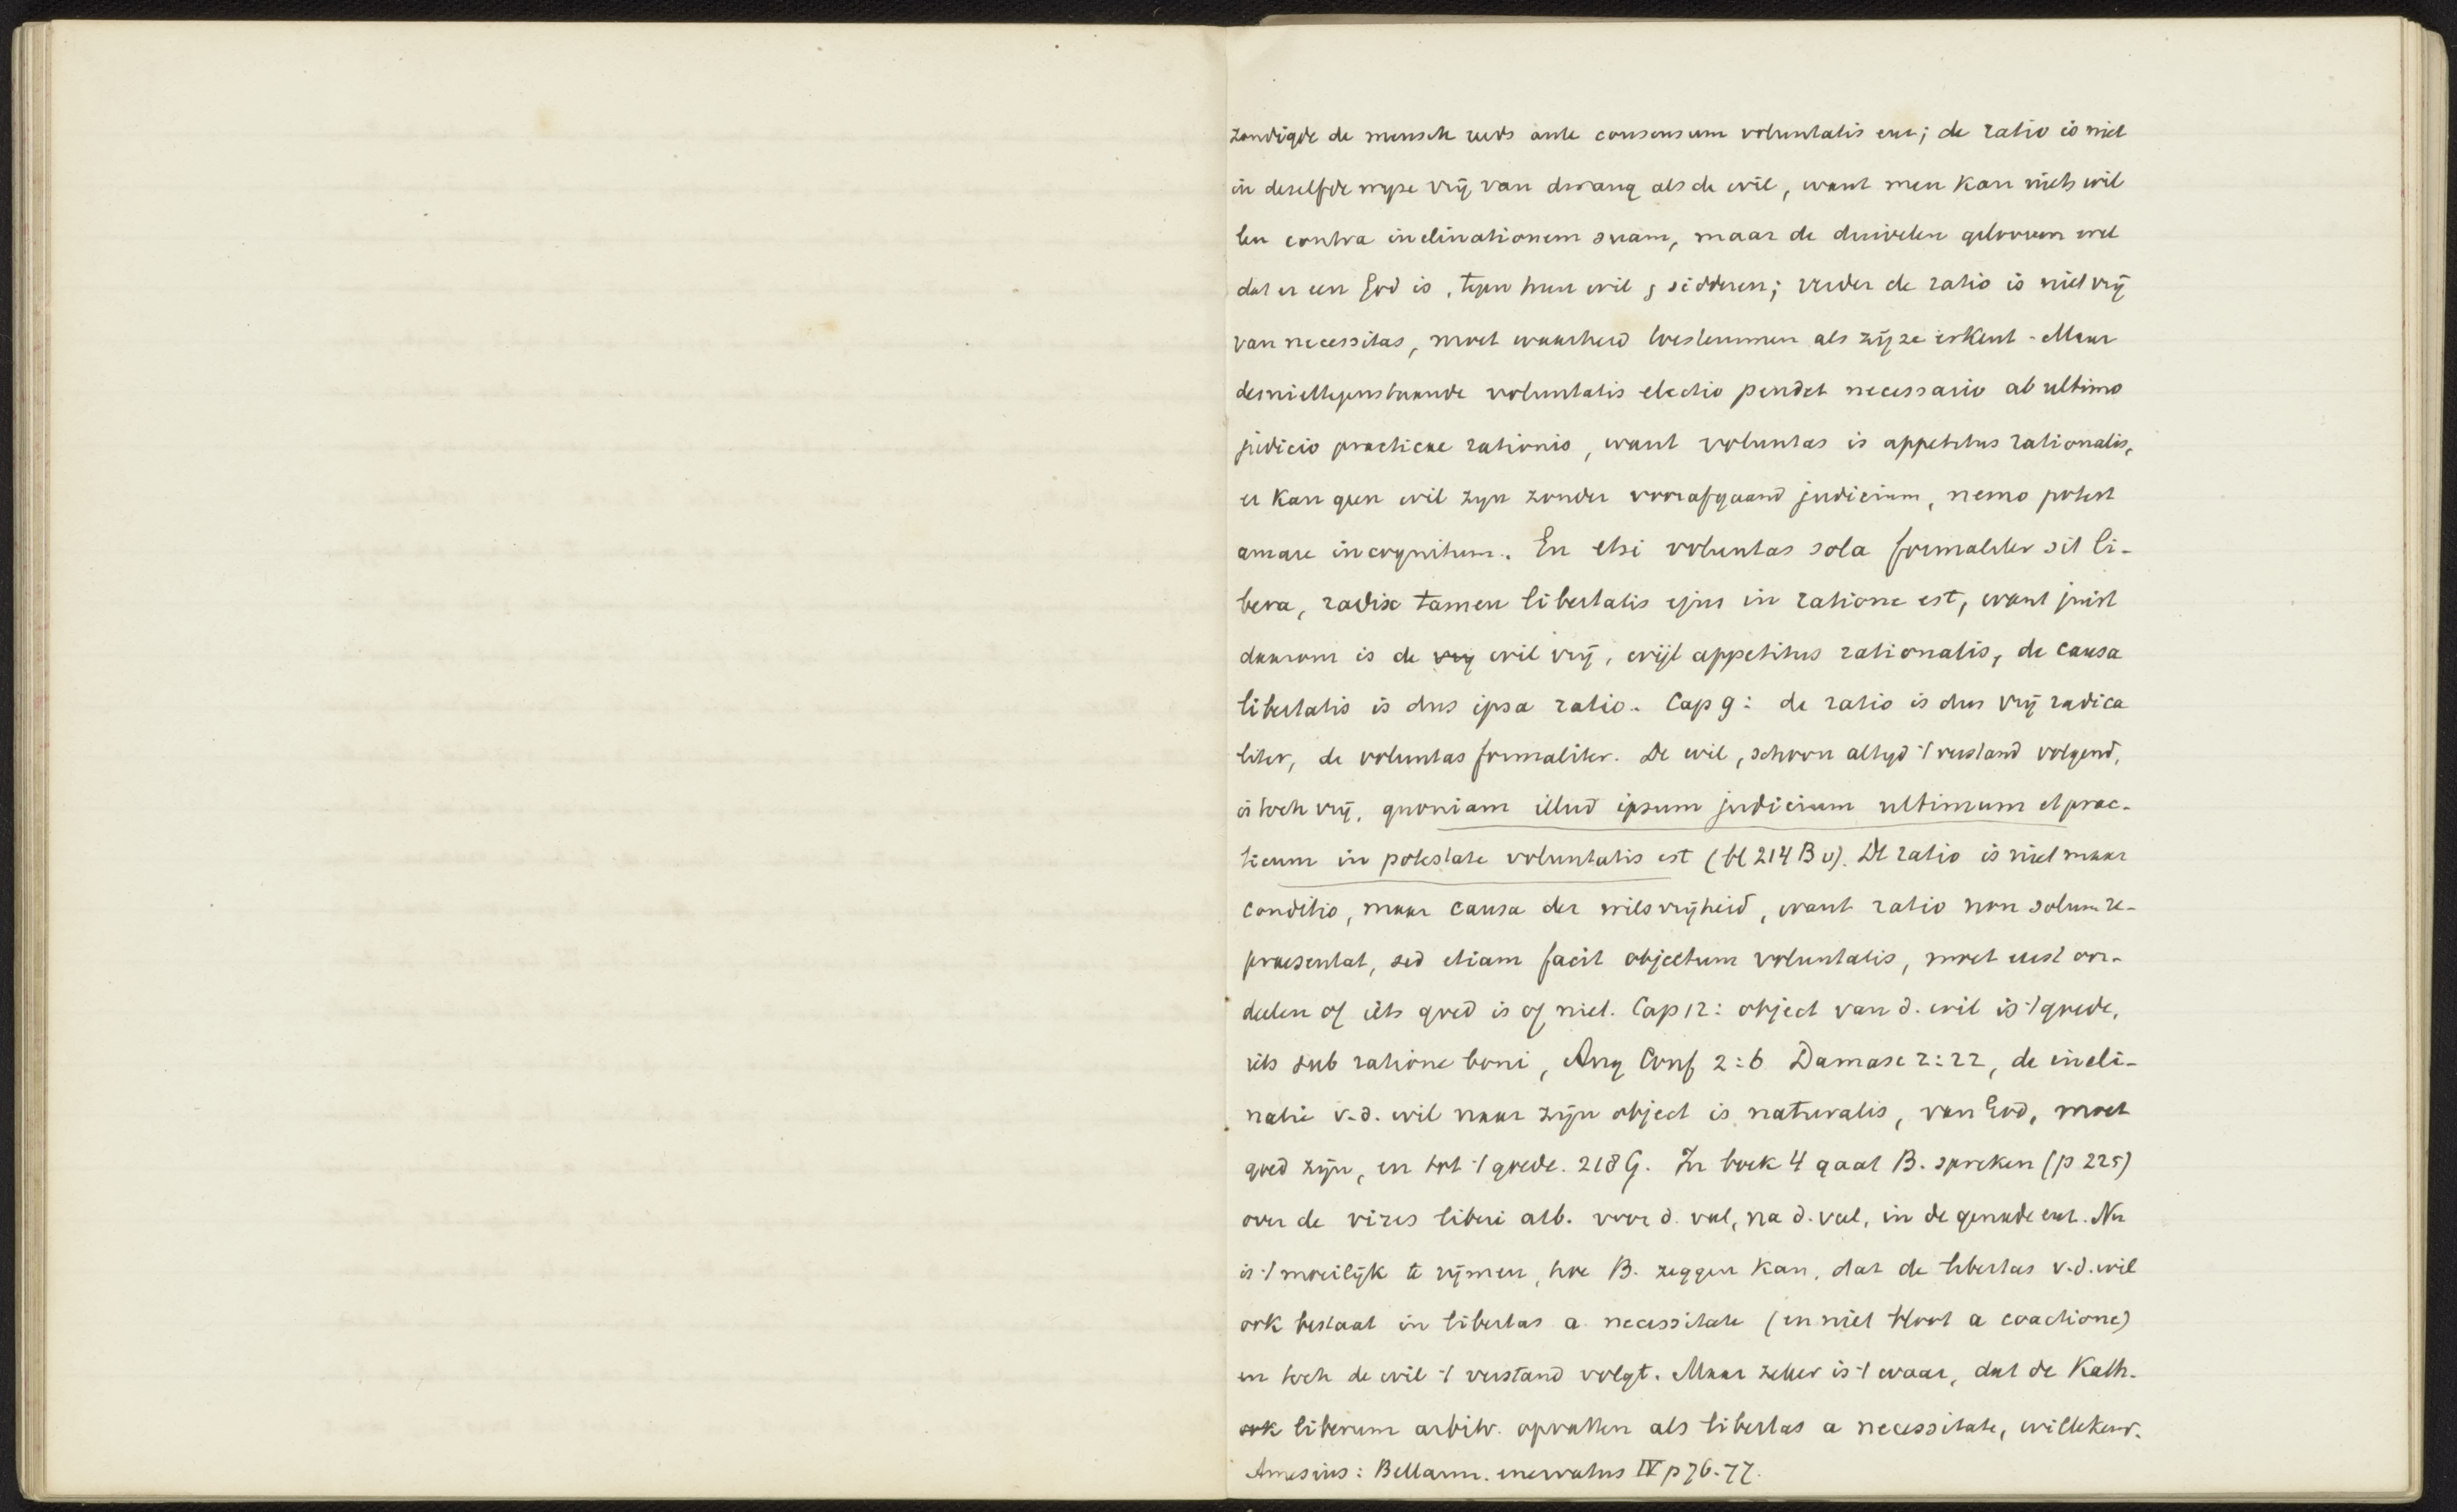 zondigde de mensch reeds ante consensum voluntatis enz; de ratio is niet
in deselfde wyze vrij van dwang als de wil, want men kan niets wil
len contra inclinationem suam, maar de duivelen gelooven wel
dat er een God is, tegen hun wil, sidderen; verder de ratio is niet vrij
van necessitas, moet waarheid toestemmen als zij ze erkent. Maar
desniettegenstaande voluntatis electio pendet necessario ab ultimo
judicio practicae rationis, want voluntas is appetitus rationalis,
er kan geen wil zyn zonder voorafgaand judicium, nemo potest
amare incognitum. En etsi voluntas sola formaliter sit li-
bera, radix tamen libertatis ejus in ratione est, want juist
daarom is de vrij wil vrij, wijl appetitus rationalis, de causa
libertatis is dus ipsa ratio. Cap 9: de ratio is dus vrij radica
liter, de voluntas formaliter. De wil, schoon altyd 't verstand volgend,
is toch vrij, quoniam illud ipsum judicium ultimum et prac-
ticum in potestate voluntatis est (bl 214 B v). De ratio is niet maar
conditio, maar causa der wilsvrijheid, want ratio non solum re-
praesentat, sed etiam facit objectum voluntatis, moet eerst oor-
deelen of iets goed is of niet. Cap 12: object van d. wil is 't goede,
iets sub ratione boni, Aug Conf 2:6 Damasc 2:22, de incli-
natie v.d. wil naar zijn object is naturalis, van God, moet
goed zijn, en tot 't goede. 218 G. In boek 4 gaat B. spreken (p 225)
over de vires liberi arb. voor d. val, na d. val, in de genade enz. Nu
is 't moeilijk te rijmen, hoe B. zeggen kan, dat de libertas v.d. wil
ook bestaat in libertas a necessitate (en niet bloot a coactione)
en toch de wil 't verstand volgt. Maar zeker is 't waar, dat de Kath.
ook liberum arbitr. opvatten als libertas a necessitate, willekeur.
Amesius: Bellarm. enervatus IV p 76-77.